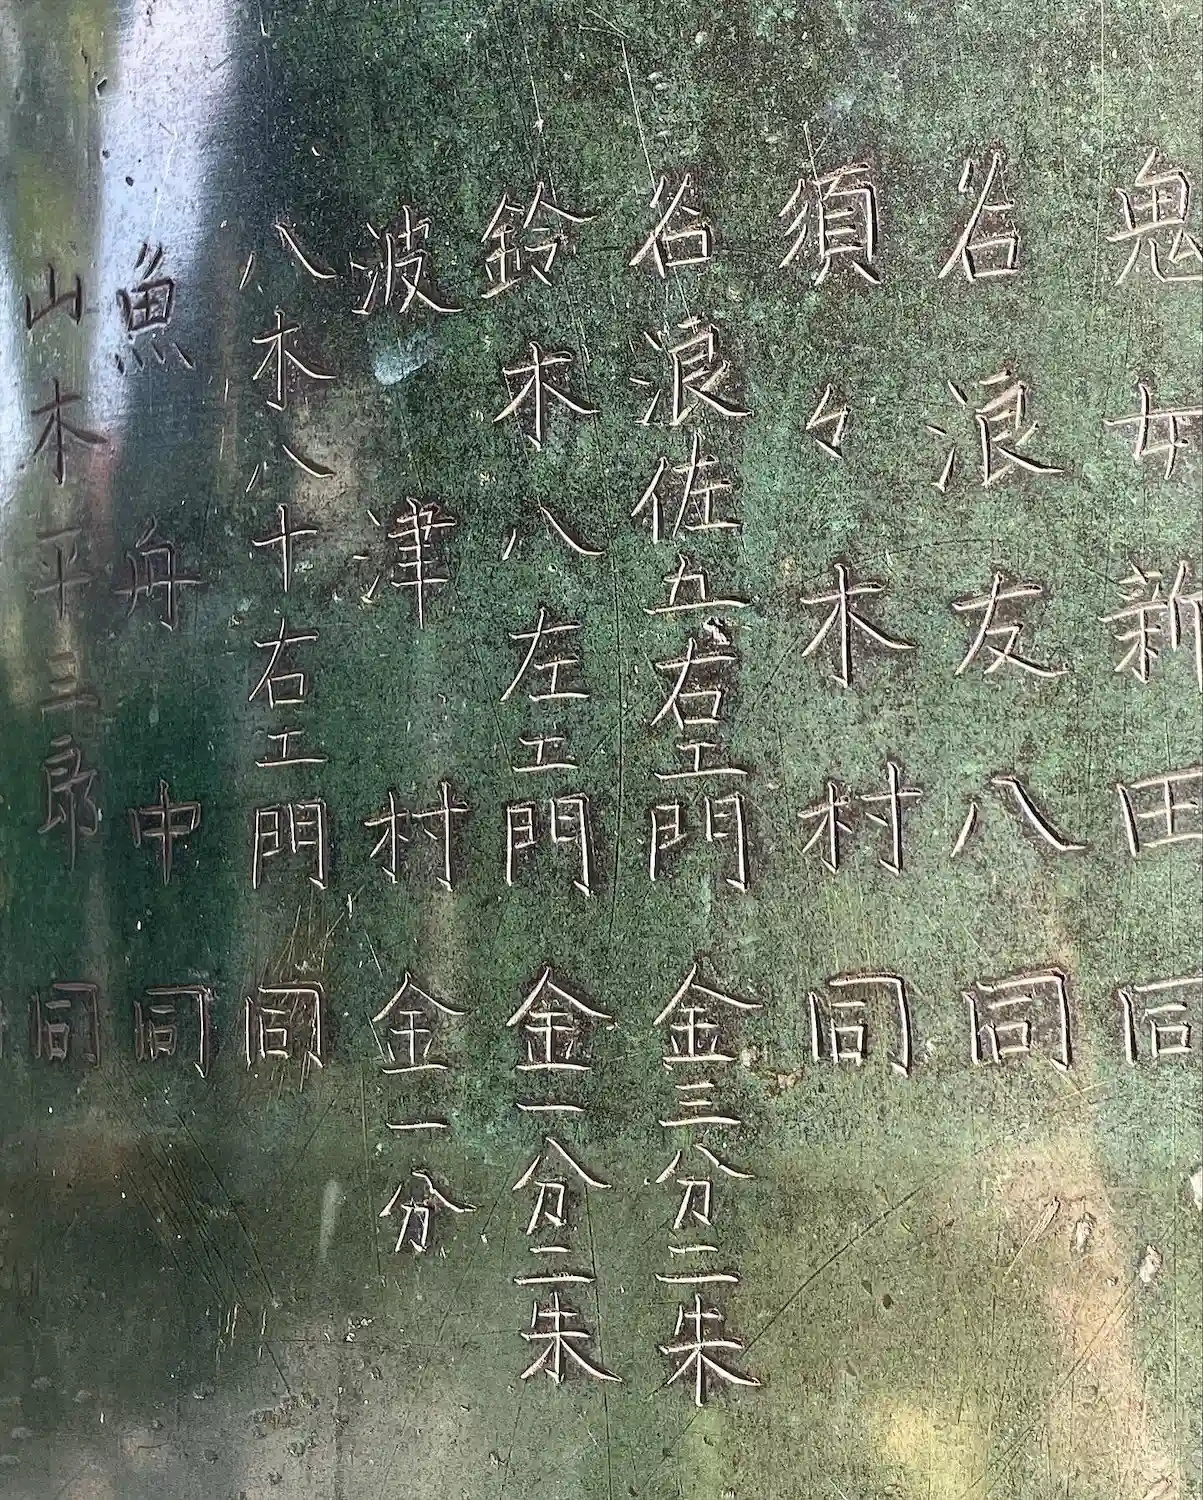 鬼女新田 同
名浪友八 同
須々木村 同
名浪佐五右エ門 金三分二朱
鈴木八左エ門 金一分二朱
波津村 金一分
八木八十右エ門 同
魚舟中 同
山本平三郎 同